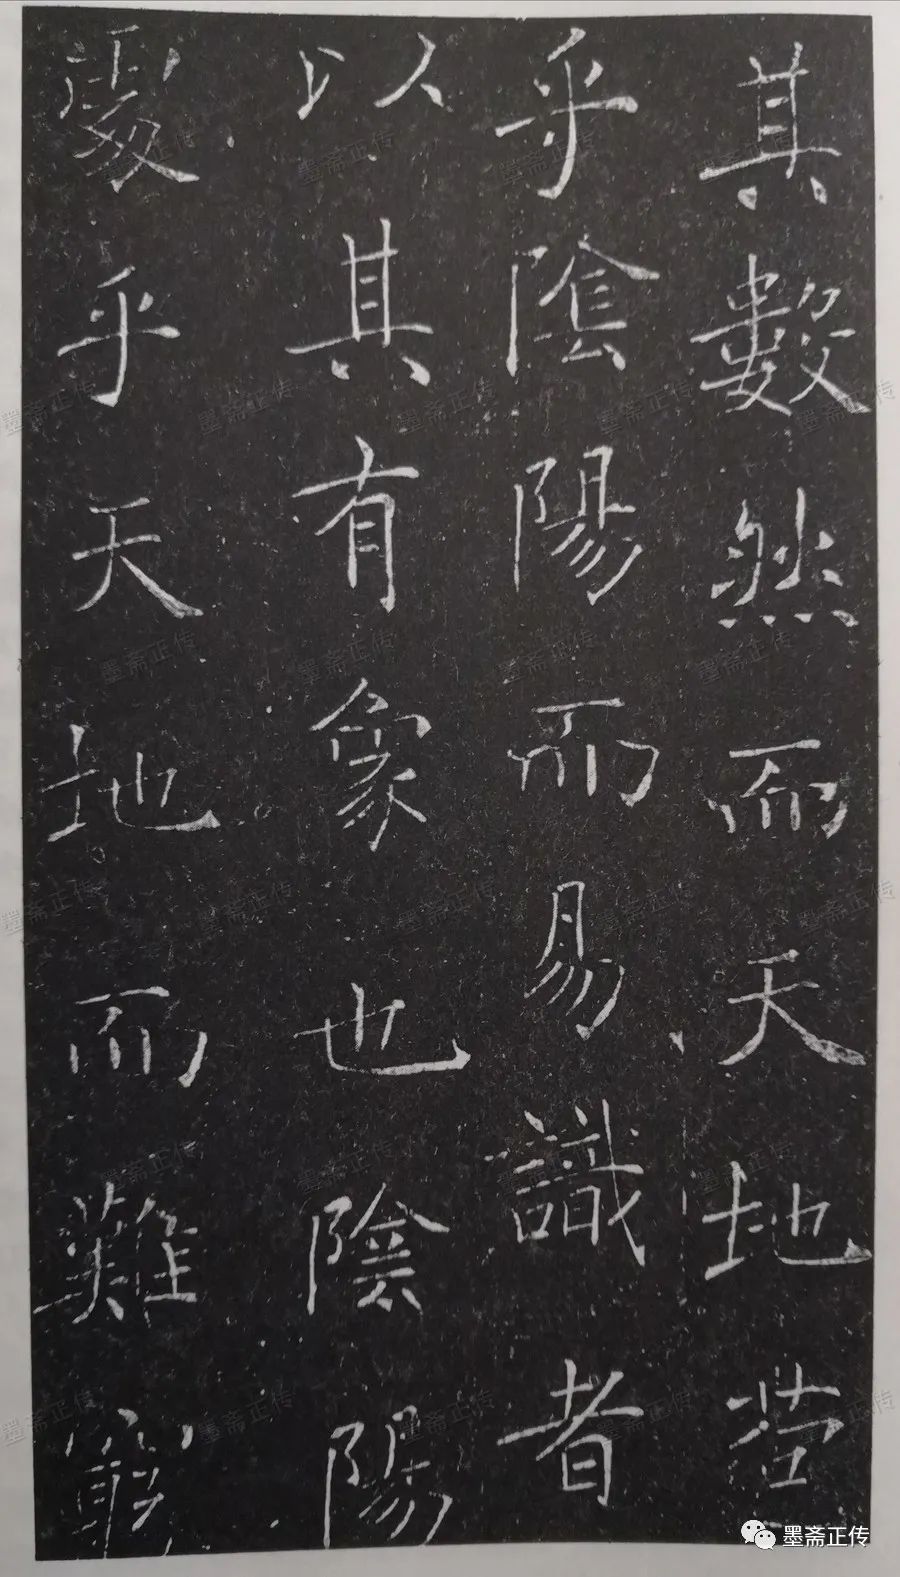 其數然而天地苞
乎陰陽而易識者
以其有象也陰陽
處乎天地而難窮
墨斋正传